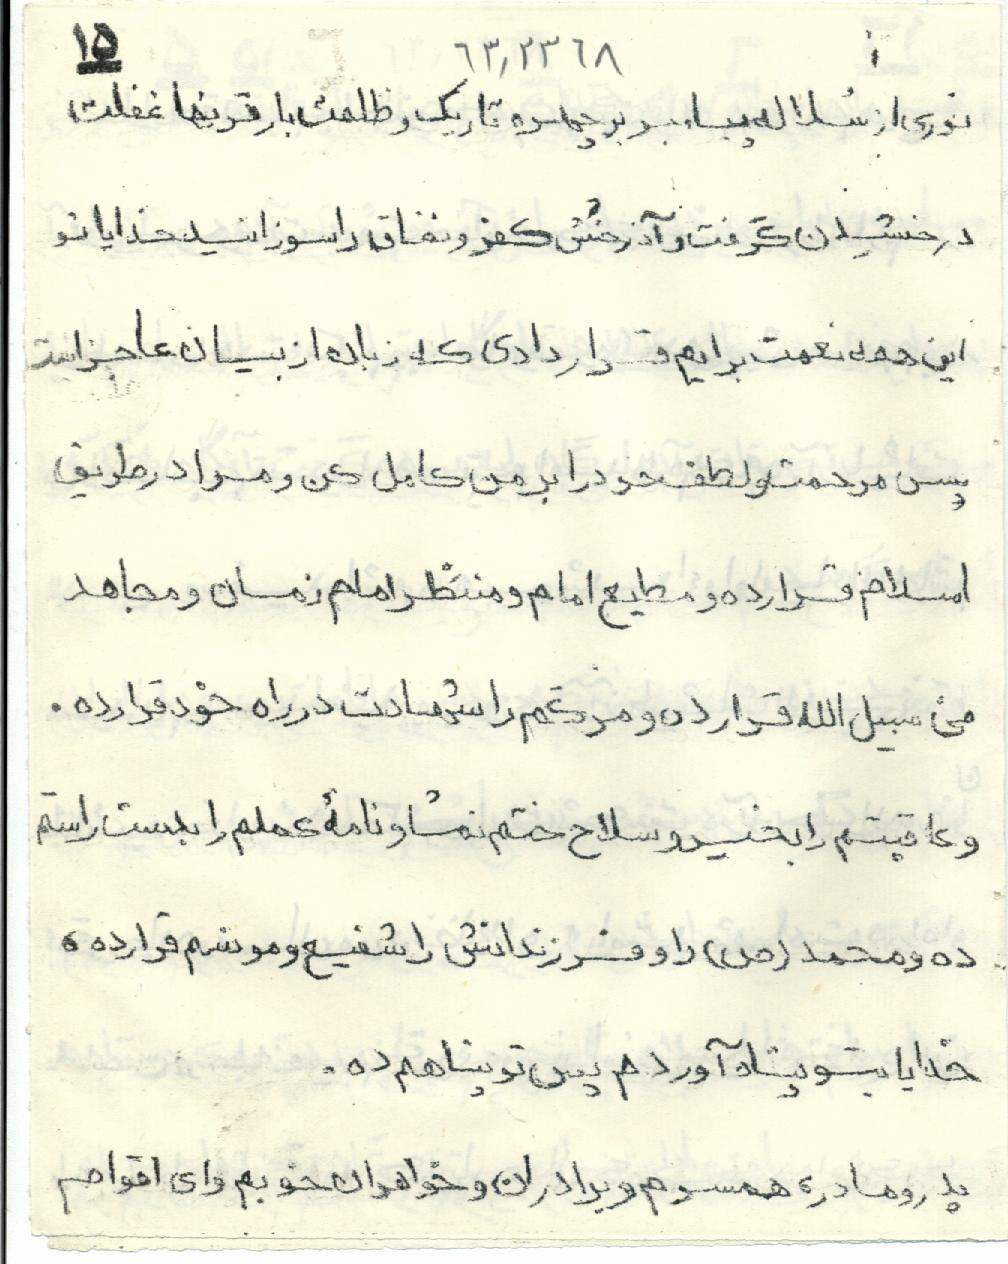 ۱۵ ۶۳,۲۳۶۸
نوری از سُلاله پیامبر بر چهره تاریک و ظلمت بار قرنها غفلت
درخشیدن گرفت و آذرخْش کفر و نفاق را سوزانید خدایا تو
این همه نعمت برایم قرار دادی که زبان از بیان عاجز است
پس مرحمت و لطف خود را بر من کامل کن و مرا در طریق
اسلام قرار ده و مطیع امام و منتظر امام زمان و مجاهد
فی سبیل الله قرار ده و مرگم را شهادت در راه خوْد قرار ده .
و عاقبتم را بخیر و سلاح ختم نما و نامهٔ عملم را بدست راستم
ده و محمد (ص) را و فرزندانش را شفیع و مونسم قرار ده
خدایا بتو پناه آوردم پس تو پناهم ده .
پدر و مادر، همسرم و برادران و خواهران خوبم و ای اقوام